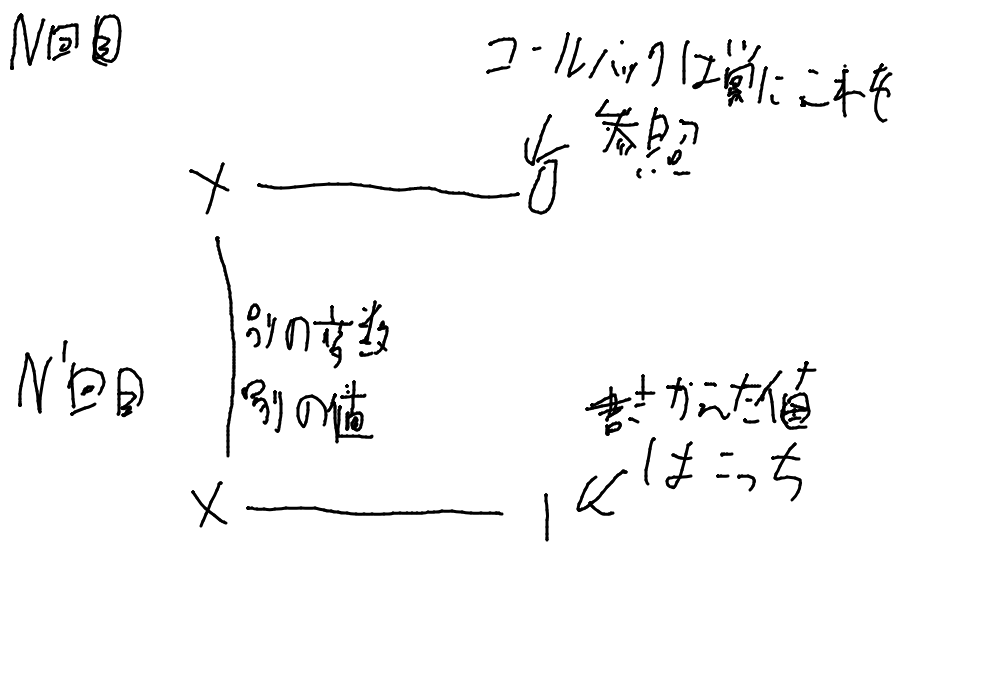 N回目
コールバックは常にこれを
参照
x 0
別の変数
別の値
N'回目
書きかえた値
はこっち
x 1